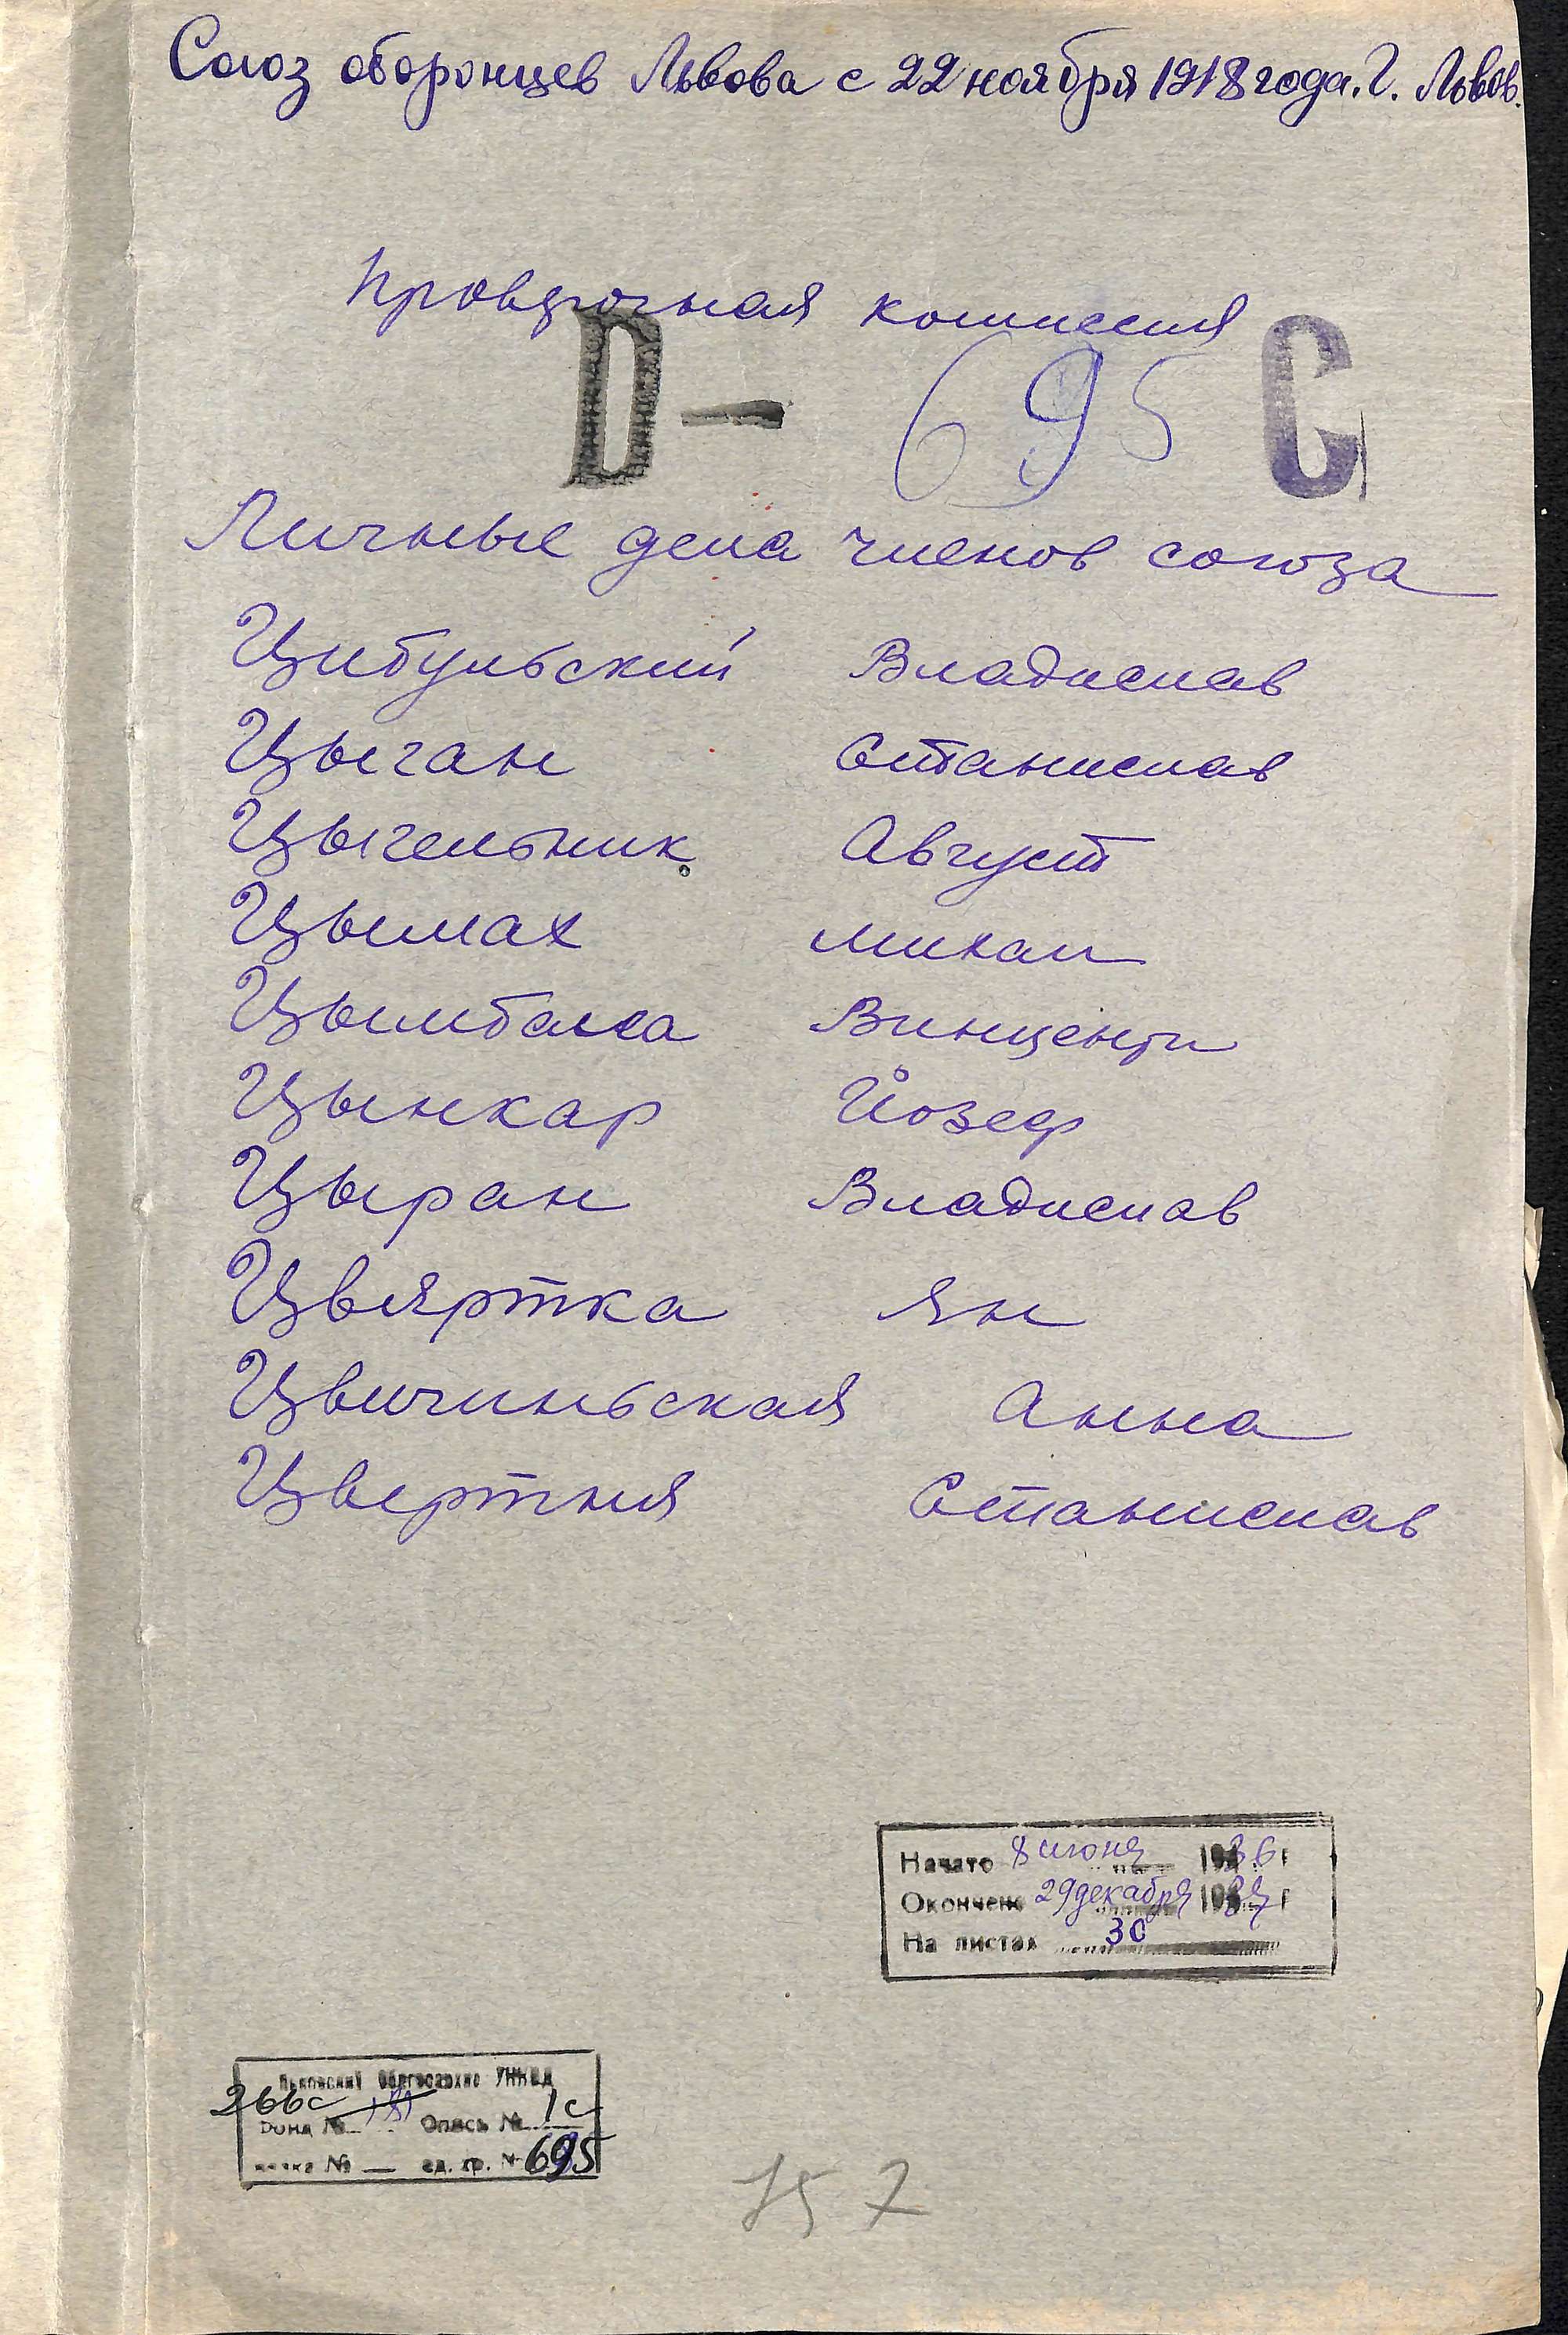 Союз оборонцев Львова с 22 ноября 1918 года. Г. Львов.
Проверочная комиссия
D — 695 С
Личные дела членов союза
Цибульский Владислав
Цыган Станислав
Цыгельник Август
Цымах Михал
Цымбала Винценти
Цынкар Йозеф
Цыран Владислав
Цвяртка Ян
Цвичиньская Анна
Цвертня Станислав
Начато 8 июня 1936 г
Окончено 29 декабря 1937 г
На листах 30
Львовский Облгосархив УНКВД
266с
Фонд № Опись № 1с
связка № — ед. хр. № 695
157